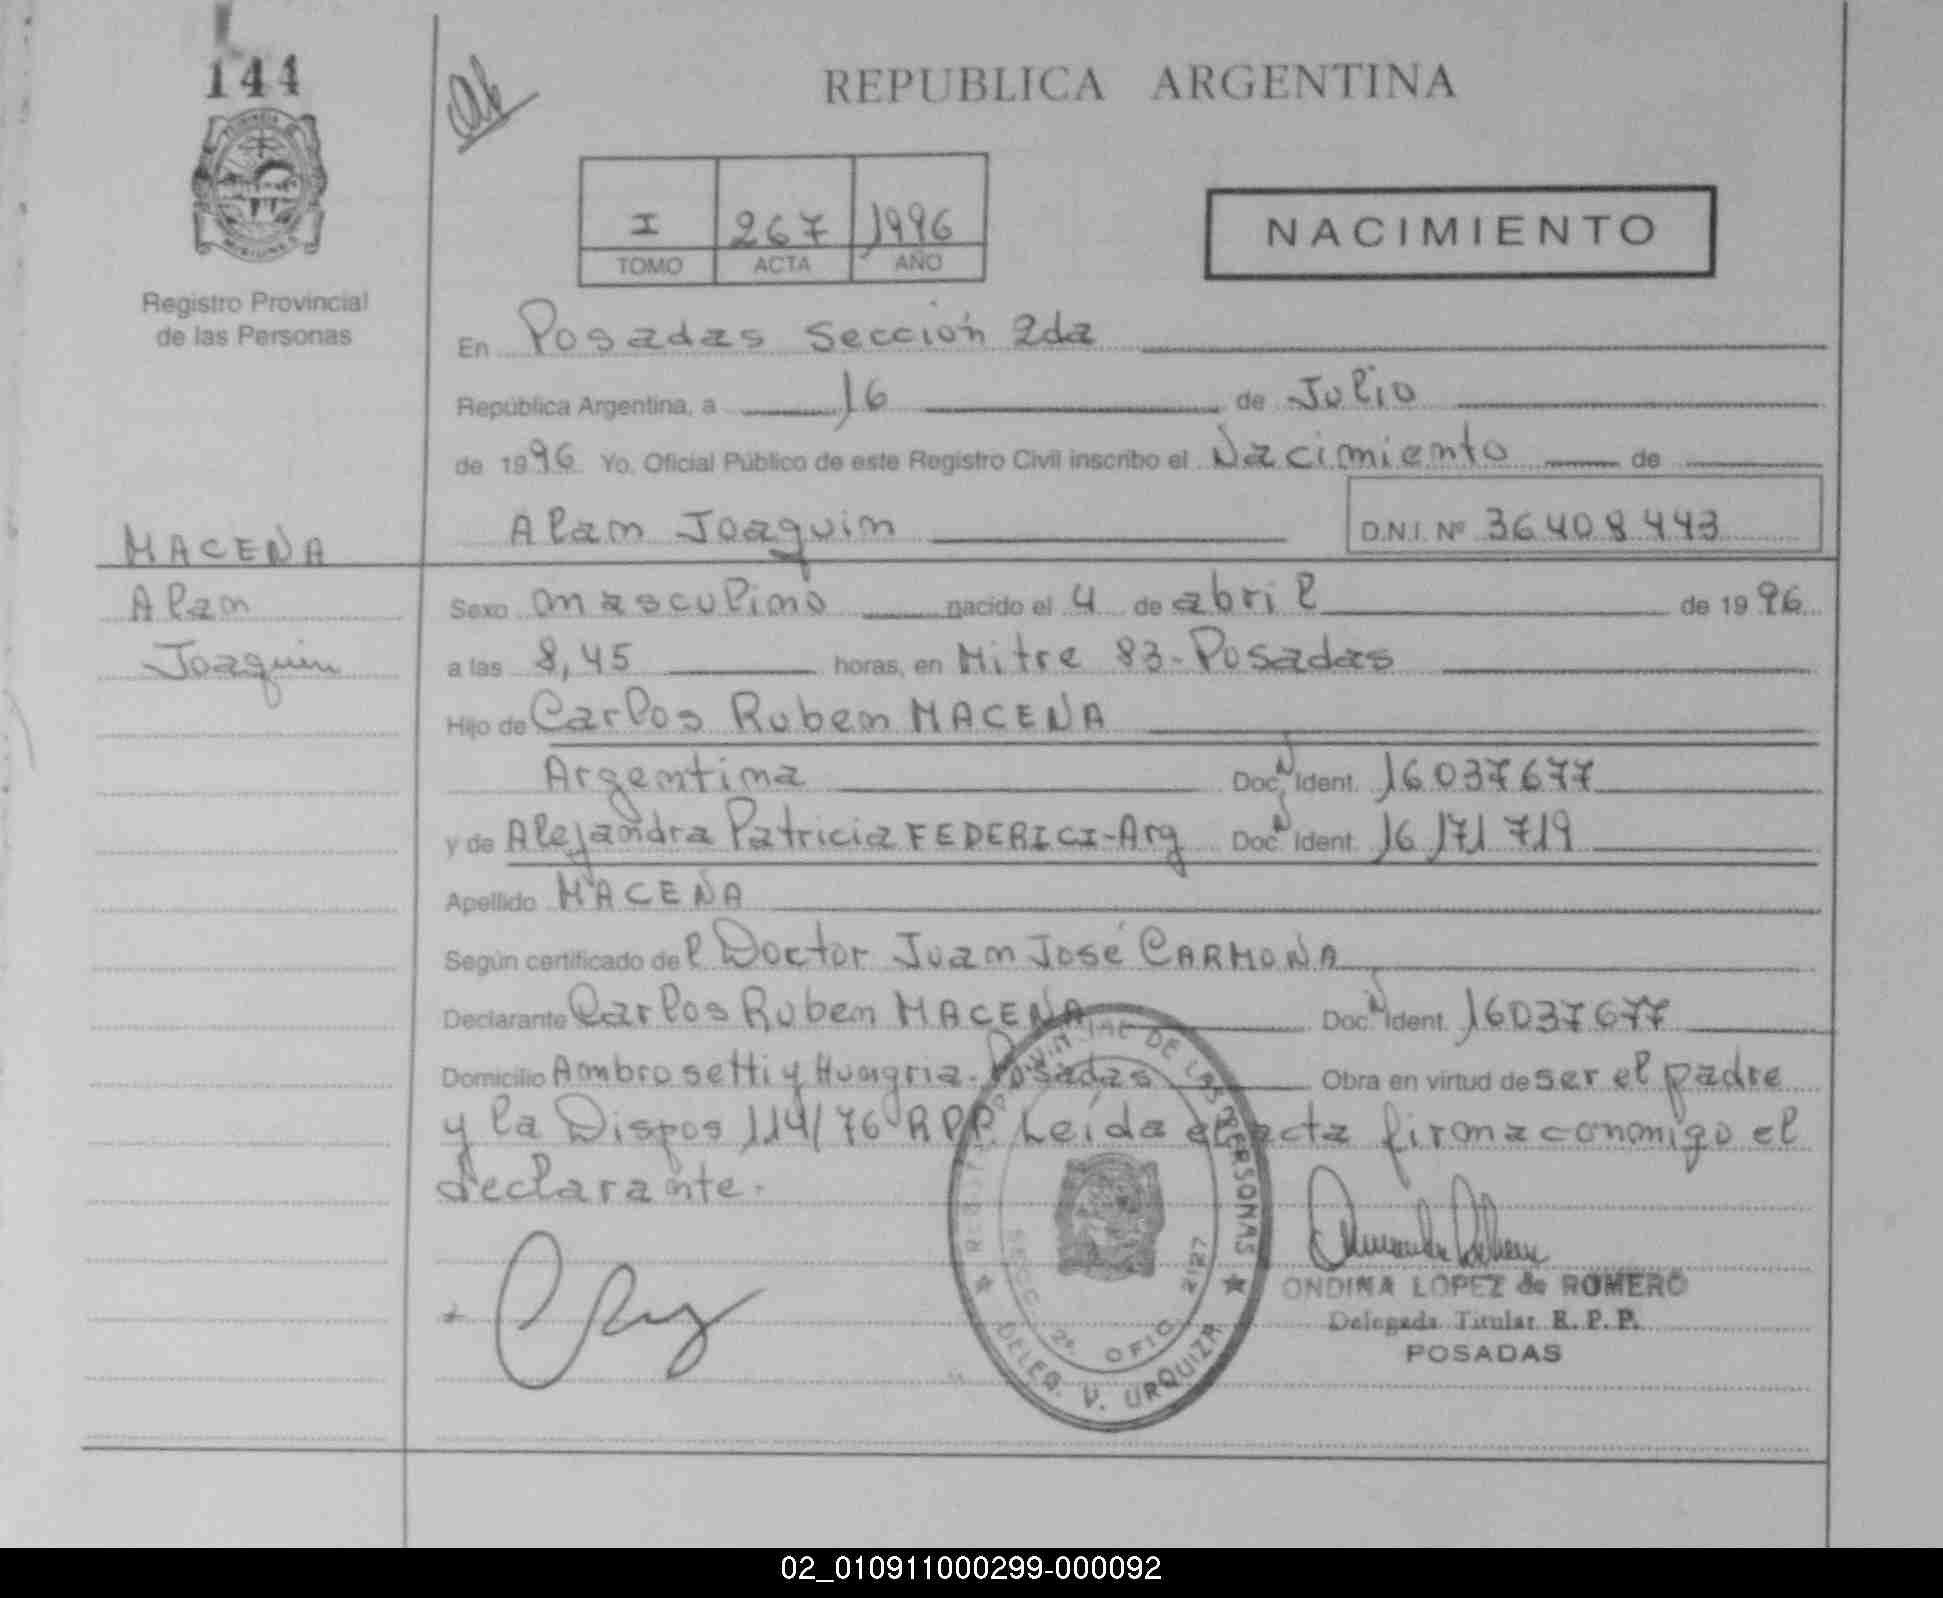 144
REPUBLICA ARGENTINA
I 267 1996
TOMO ACTA AÑO
NACIMIENTO
Registro Provincial
de las Personas
En Posadas Sección 2da
República Argentina, a 16 de Julio
de 1996 Yo, Oficial Público de este Registro Civil inscribo el Nacimiento de
Alan Joaquin D.N.I. Nº 36408443
MACENA
Alan
Joaquin
Sexo masculino nacido el 4 de abril de 1996
a las 8,45 horas, en Mitre 83-Posadas
Hijo de Carlos Ruben MACENA
Argentina Doc. N Ident. 16037677
y de Alejandra Patricia FEDERICI-Arg Doc. N Ident. 16171719
Apellido MACENA
Según certificado del Doctor Juan José CARMONA
Declarante Carlos Ruben MACENA Doc. N Ident. 16037677
Domicilio Ambrosetti y Hungria-Posadas Obra en virtud de ser el padre
y la Dispos 114/76 RPP. Leída el acta firma conmigo el
declarante.
REGISTRO PROVINCIAL DE LAS PERSONAS
SECC. 2ª. OFIC. 2127
DELEG. V. URQUIZA
ONDINA LOPEZ de ROMERO
Delegada Titular R. P. P.
POSADAS
02_010911000299-000092